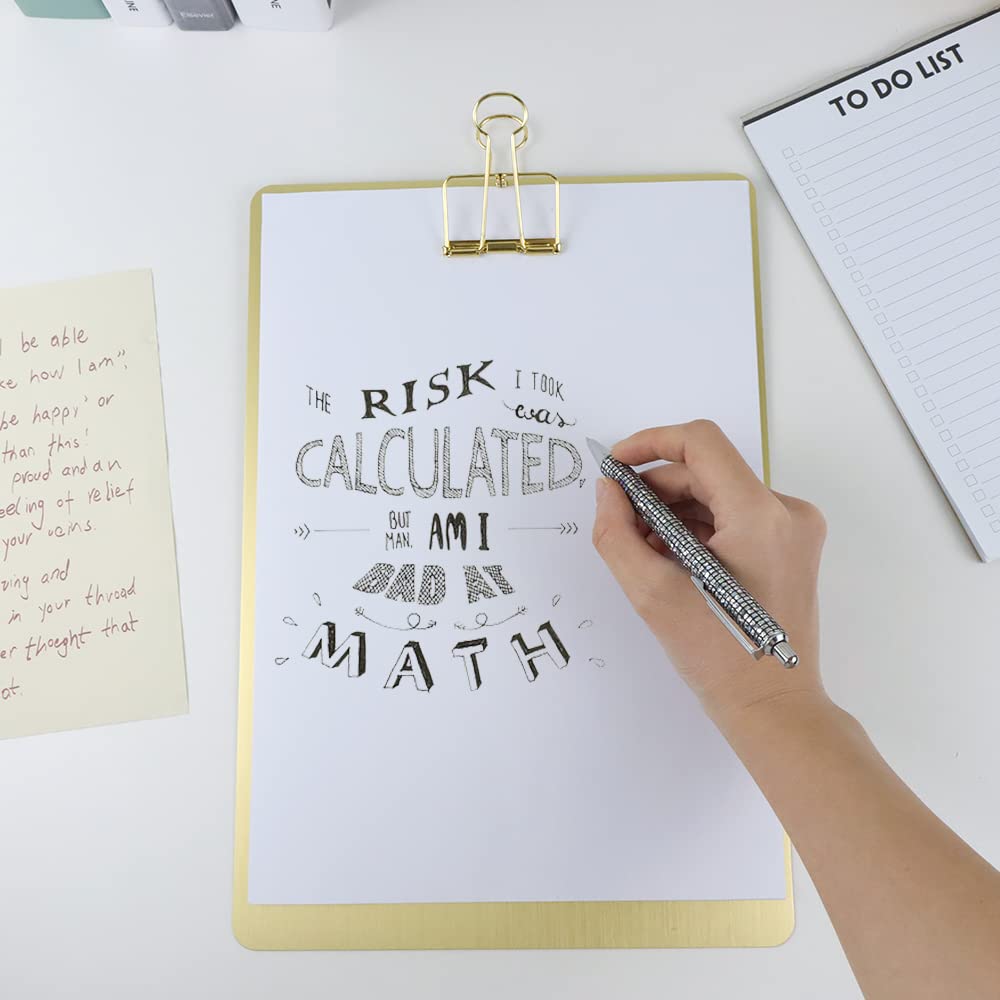 UNE
Elsevier
UNE
TO DO LIST
THE RISK I TOOK
was
CALCULATED,
BUT
MAN, AM I
BAD AT
MATH
be able
how I am",
be happy" or
than this!
proud and an
eeling of relief
your veins.
ving and
in your thread
er thoeght that
at.